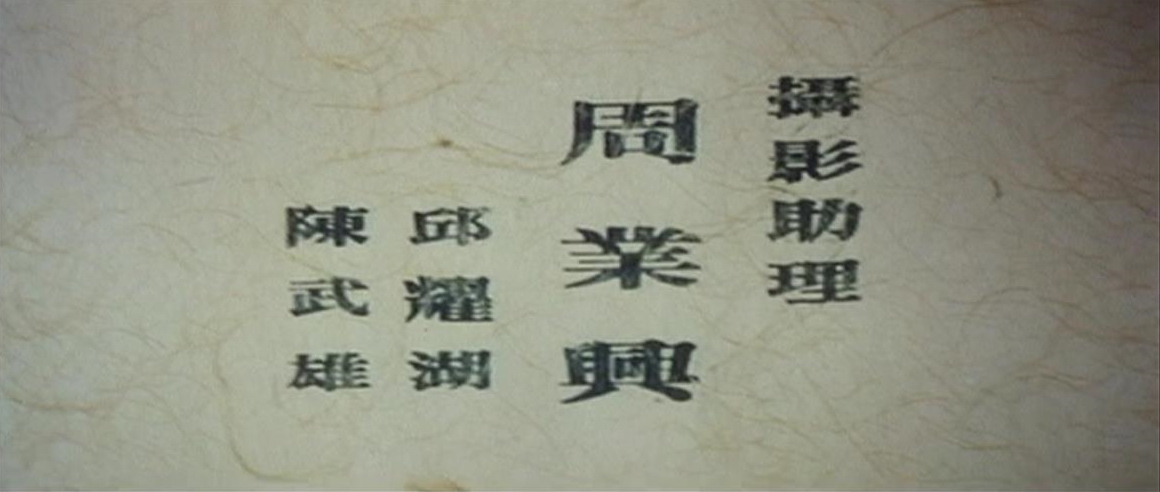 攝影助理
周業興
邱耀湖
陳武雄